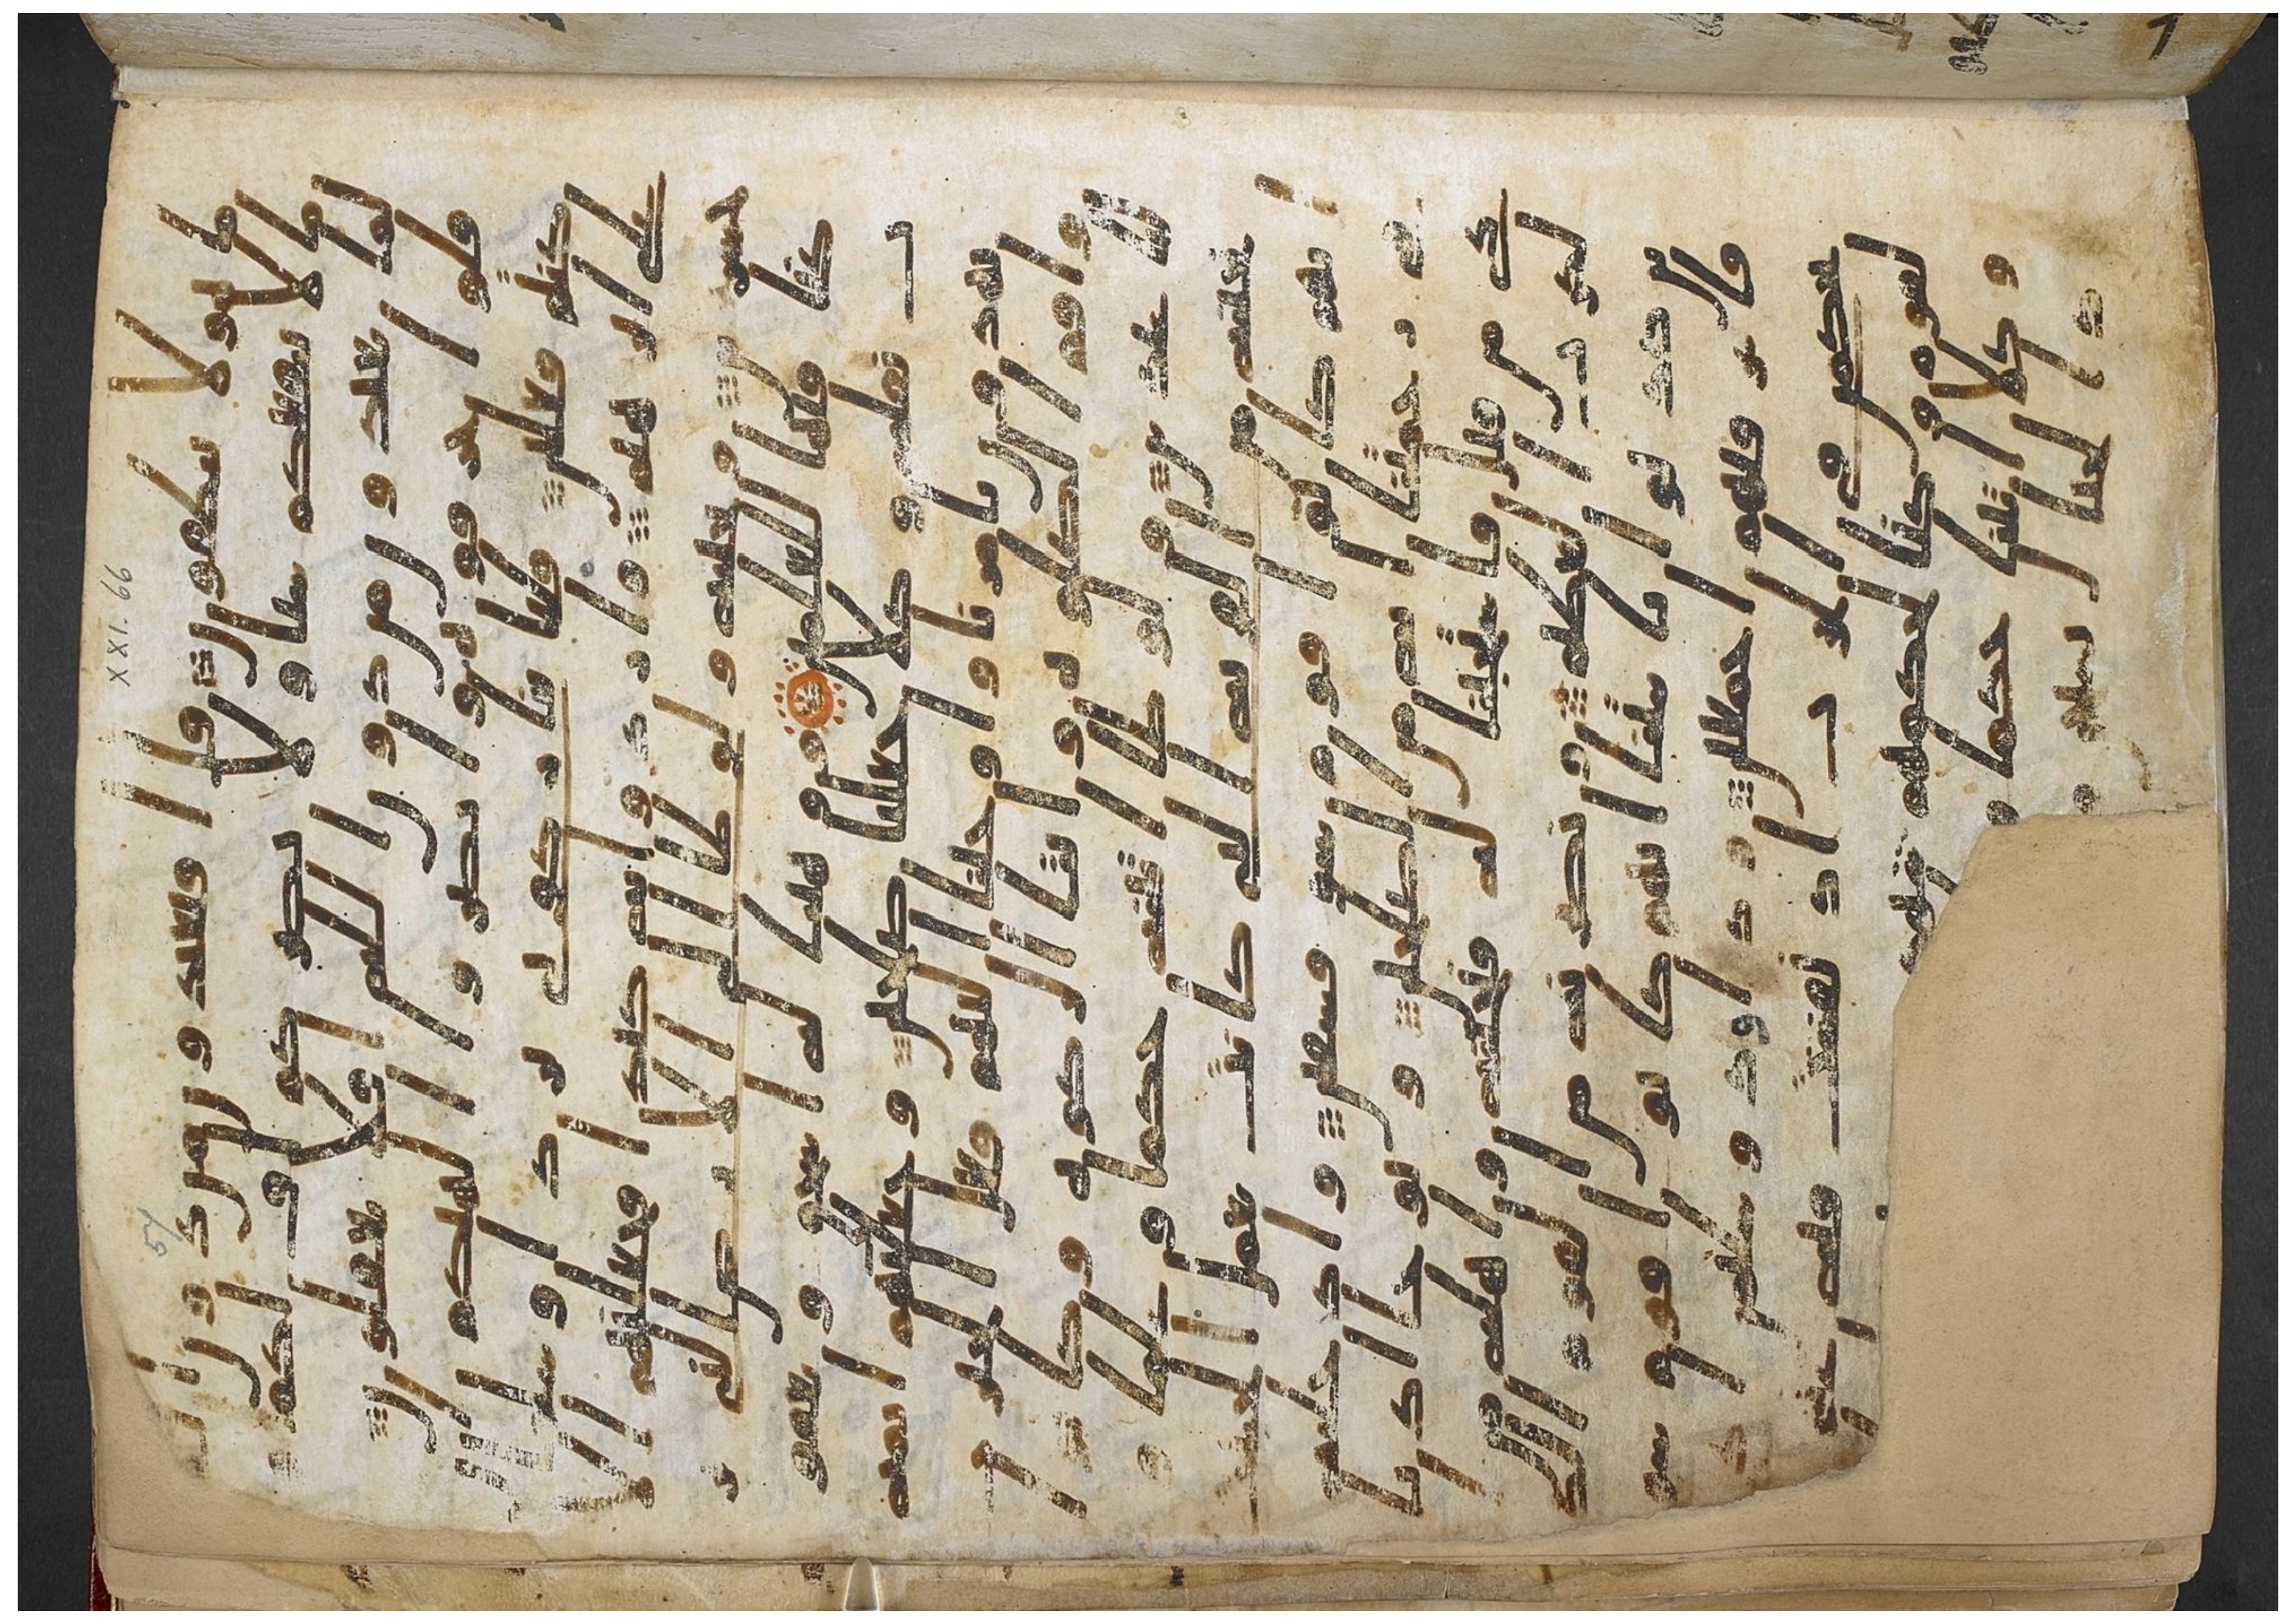 هولا ينطقون قال افتعبدون من دون الله
ما لا ينفعكم شيا ولا يضركم اف لكم
ولما تعبدون من دون الله افلا تعقلون
قالوا حرقوه وانصروا الهتكم ان
كنتم فعلين قلنا ينار كوني بردا وسلما
علي ابرهيم وارادوا به كيدا فجعلنهم الا
خسرين ونجينه ولوطا الي الارض التي
بركنا فيها للعلمين ووهبنا له اسحق ويعقو
ب نفله وكلا جعلنا صلحين وجعلنهم ايمه
يهدون بامرنا واوحينا اليهم فعل الخير
ت واقام الصلوه وايتا الزكوه وكا
نوا لنا عبدين ولوطا اتينه حكما وعلما
ونجينه من القريه التي كانت تعمل الخبيث
انهم كانوا قوم سو فسقين وادخلنه
في رحمتنا انه من الصلحين ونوحا اذ نا
دي من قبل فاستجبنا له فنجينه واهله من ا
لكرب العظيم ونصرنه من القوم الذ
ين كذبوا بايتنا انهم كانوا قوم سو
فاغرقنهم اجمعين وداود وسليمن
اذ يحكمن في الحرث اذ نفشت فيه غنم
القوم وكنا لحكمهم شهدين
وكلا اتينا حكما و
الجبال يسبحن و
XXI. 66
57